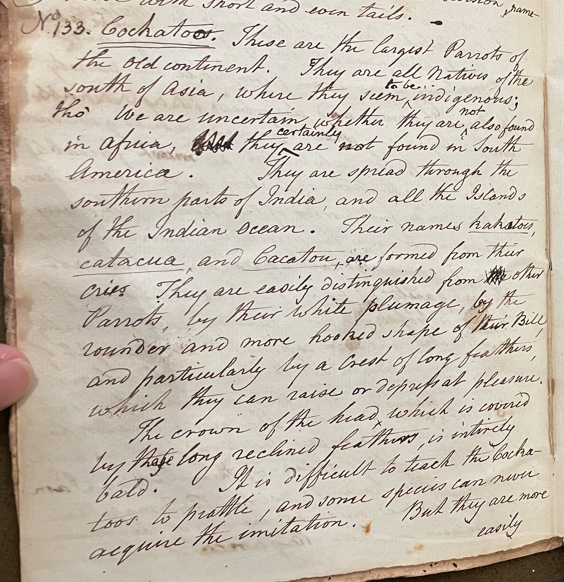 with short and even tails.
No 133. Cockatoos. These are the largest Parrots of
the old continent. They are all Natives of the
south of Asia, where they seem to be indigenous;
tho' We are uncertain, whether they are not also found
in africa, they certainly are not found in South
America. They are spread through the
southern parts of India, and all the Islands
of the Indian Ocean. Their names kakatoes,
catacua, and Cacatou, are formed from their
cries. They are easily distinguished from other
Parrots, by their white plumage, by the
rounder and more hooked shape of their Bill,
and particularly by a Crest of long feathers,
which they can raise or depress at pleasure.
The crown of the head, which is covered
by these long reclined feathers, is intirely
bald. It is difficult to teach the Cocka-
toos to prattle, and some species can never
acquire the imitation. But they are more
easily